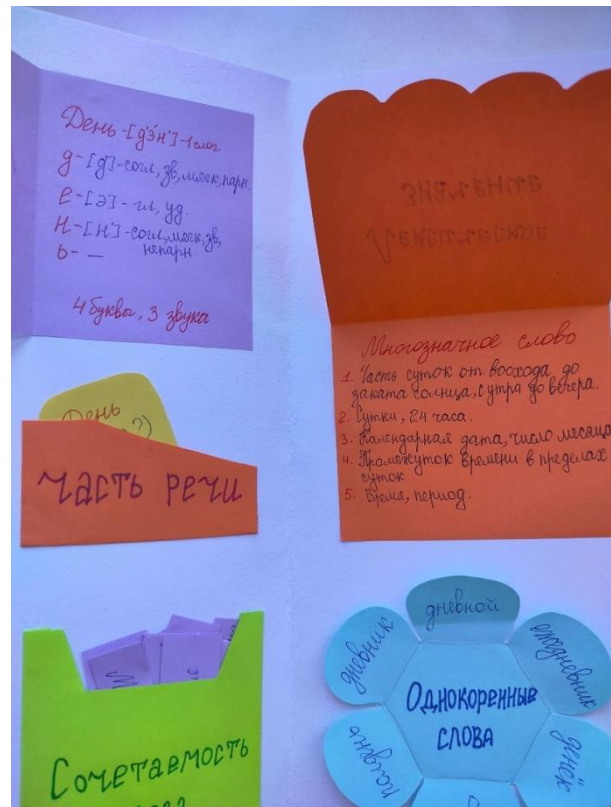 День-[д'э́н']-1 слог
д-[д']-согл, зв, мягк, парн.
е-[э]-гл, уд.
н-[н']-согл, мягк, зв,
непарн
ь- —
4 буквы, 3 звука
День
часть речи
Сочетаемость
значение
Лексическое
Многозначное слово
1. Часть суток от восхода до
заката солнца, с утра до вечера.
2. Сутки, 24 часа.
3. Календарная дата, число месяца
4. Промежуток времени в пределах
суток
5. Время, период.
дневной
дневник
ежедневник
Однокоренные
слова
полдень
денёк